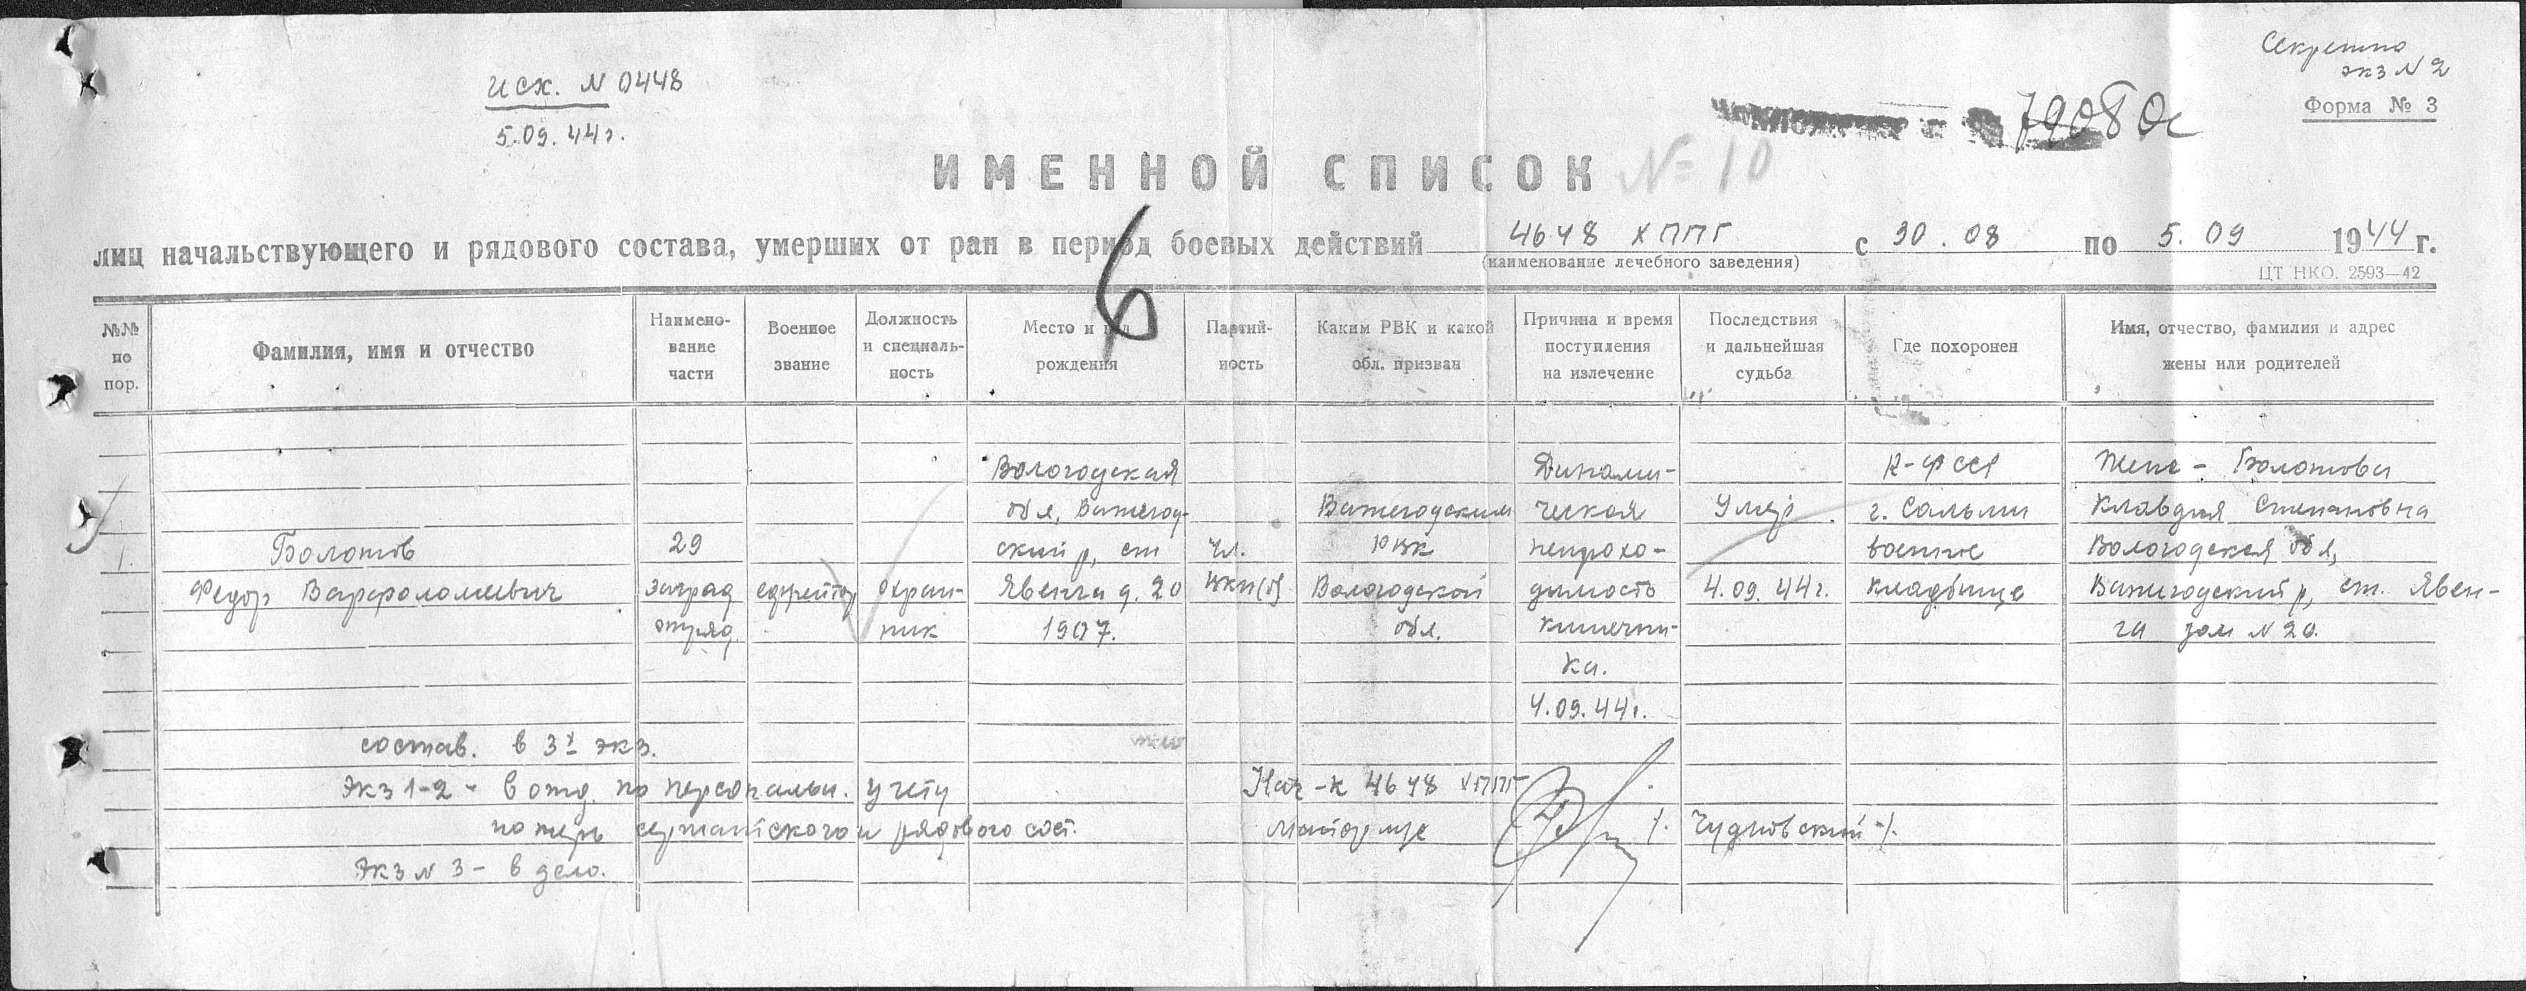 Секретно
экз N 2
Форма № 3
исх. N 0448
5.09.44 г.
79080с
ИМЕННОЙ СПИСОК № 10
6
лиц начальствующего и рядового состава, умерших от ран в период боевых действий 4648 ХППГ с 30.08 по 5.09 1944 г.
(наименование лечебного заведения)
ЦТ НКО. 2593—42
№№ по пор.
Фамилия, имя и отчество
Наимено-
вание
части
Военное
звание
Должность
и специаль-
ность
Место и год
рождения
Партий-
ность
Каким РВК и какой
обл. призван
Причина и время
поступления
на излечение
Последствия
и дальнейшая
судьба
Где похоронен
Имя, отчество, фамилия и адрес
жены или родителей
1.
Болотов
Федор Варфоломеевич
29
заград
отряд
ефрейтор
охран-
ник
Вологодская
обл, Вожегод-
ский р, ст
Явенга д. 20
1907.
Чл.
ВКП(б)
Вожегодским
РВК
Вологодской
обл.
Динами-
ческая
непрохо-
димость
кишечни-
ка.
4.09.44г.
Умер
4.09.44г.
К-ФССР
г. Сальми
военное
кладбище
Жена - Болотова
Клавдия Степановна
Вологодская обл,
Вожегодский р, ст. Явен-
га дом N 20.
состав. в 3х экз.
Экз 1-2 - в отд. по персональн. учету
потерь сержантского и рядового сост.
Экз N 3 - в дело.
Нач-к 4648 ХППГ
майор м/с /. Чудновский -/.